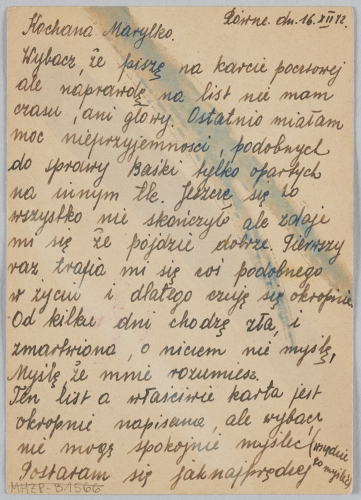 Równe. dn. 16.XII 42.
Kochana Marylko.
Wybacz, że piszę na karcie pocztowej
ale naprawdę na list nie mam
czasu, ani głowy. Ostatnio miałam
moc nieprzyjemności, podobnych
do sprawy Baśki tylko opartych
na innym tle. Jeszcze się to
wszystko nie skończyło ale zdaje
mi się że pójdzie dobrze. Pierwszy
raz trafia mi się coś podobnego
w życiu i dlatego czuję się okropnie.
Od kilku dni chodzę zła, i
zmartwiona, o niczem nie myślę,
Myślę że mnie rozumiesz.
Ten list a właściwie karta jest
okropnie napisana, ale wybacz,
nie mogę spokojnie myśleć (wszędzie
Postaram się jaknajprędzej
MHZP-B1566